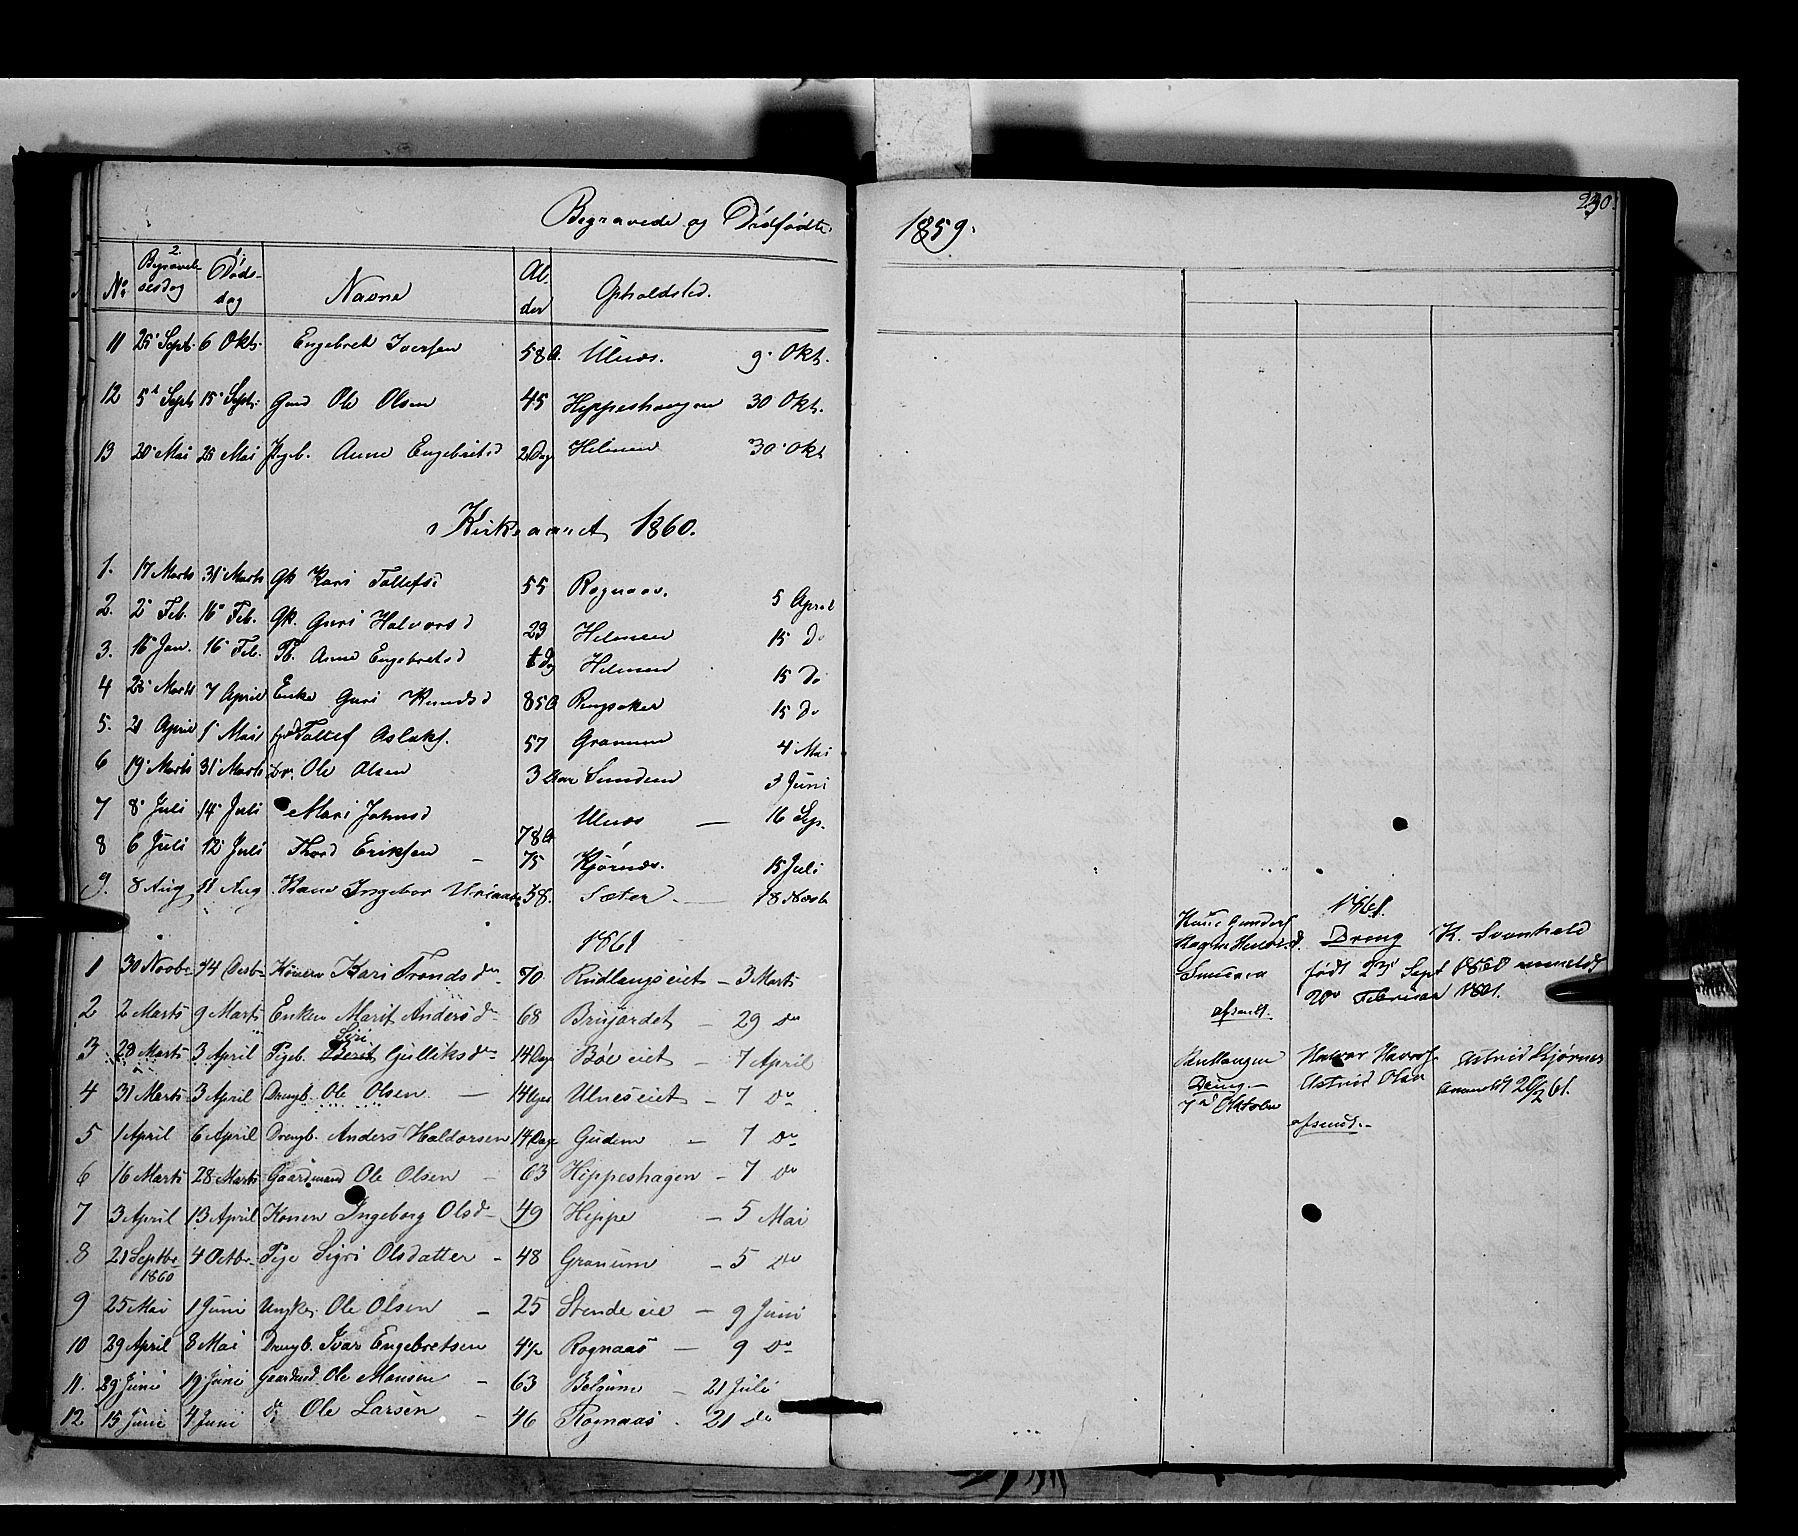 Begravede og Dødfødte
No 2 Begravel-sesdag 1 Døds-dag Navne Al-der Opholdsted.
11 25 Sept. 6 Okt. Engebret Iversen 58 A. Ulnæs. 9. Okt.
12 5 Sept 15 Sept. Gmd Ole Olsen 45 Hippeshaugen 30 Okt.
13 20 Mai 25 Mai Pigeb. Anne Engebretsd 2 Dag Helmen 30 Okt
Kirkeaaret 1860.
1. 17 Marts 31 Marts Gk Kari Tollefsd 55 Rognaas. 5 April
2. 2 Feb. 16 Feb. Gk. Guri Halvorsd 29 Helmen 15 Do
3. 15 Jan. 16 Feb. Pb. Anne Engebretsd Dg Helmen 15 Do
4 25 Marts 7 April Enke Guri Knudsd 85 A Ringsaker 15 Do
5. 21 April 1 Mai Tollef Aslaks. 57 Granum 4 Mai
6 19 Marts 31 Marts Dr. Ole Olsen 3 Sundem 3 Juni
7 8 Juli 14 Juli Mari Johnsd 78 A Ulnæs — 16 Sep.
8 6 Juli 12 Juli Thord Eriksen — 75 Kjørnæs. 15 Juli
9. 8 Aug 11 Aug Kane Ingebor 58. Sæter — 18
1861
1 30 Novbr 14 Decbr Konen Kari Trondsdr 70 Rudlangseiet — 3 Marts
2 2 Marts 9 Marts Enken Marit Andersdr 68 Brujordet — 29 Do
3 28 Marts 3 April Pigeb. Siri Gulliksdr 14 Dage Bøe eiet — 7 April
4 31 Marts 3 April Drengb. Ole Olsen — 14 Ulneseiet — 7 Do
5 1 April 6 April Drengb. Anders Haldorsen 14 Dage Gudem — 7 Do
6 16 Marts 28 Marts Gaardmand Ole Olsen — 63 Hippeshagen — 7 Do
7 3 April 13 April Konen Ingeborg Olsd — 49 Hippe — 5 Mai
8 21 Septbr 1860 4 Octbr Pige Sigri Olsdatter — 48 Granum — 5 Do
9 25 Mai 1 Juni Ungk. Ole Olsen — 25 Stende eie — 9 Juni
10 29 April 8 Mai Drengb. Ivar Engebretsen 4 1/2 Rognaas — 9 Do
11. 29 Juni 19 Juni Gaardmd. Ole Monsen — 63 Belgum — 21 Juli
12 15 Juni 4 Juni do Ole Larsen — 46 Rognaas — 21 do
1859.
230.
1861.
Dreng K. Svanheld
født 23 Sept 1860 anmeldt
20 Februar 1861.
afsendt.
Dreng —
7 Oktober
Halvor
Astrid Olsen
afsendt. —
Astrid Kjørnes
anmeldt 20/2 61.